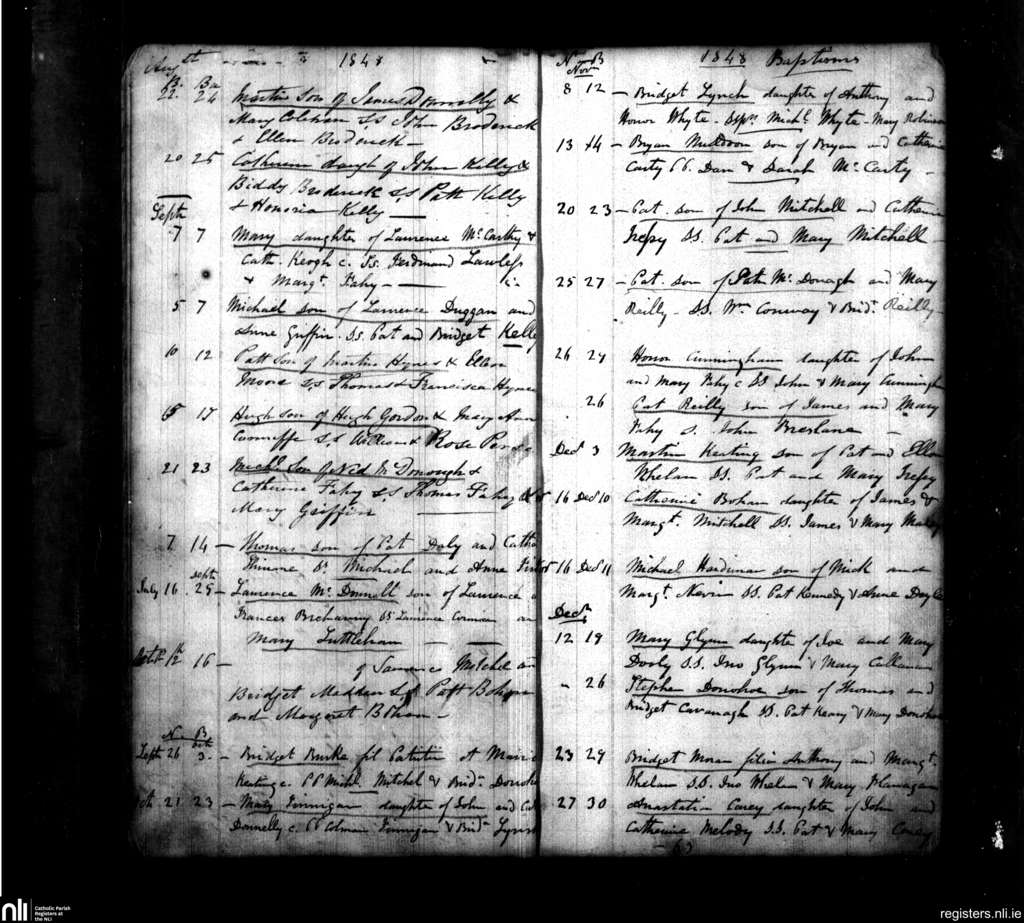 Augst 1848
B. Ba
22. 24 Martin son of James Donnelly &
Mary Coleman S,S John Broderick
& Ellen Broderick -
20 25 Catherine daugh of John Kelly &
Biddy Broderick S,S Patt Kelly
& Honoria Kelly
Septr
7 7 Mary daughter of Laurence McCarthy &
Cath. Keogh c. Ss. Ferdinand Lawless
& Margt. Fahy -
5 7 Michael son of Laurence Duggan and
Anne Griffin. SS. Pat and Bridget Kelly
10 12 Patt son of Martin Hynes & Ellen
Moore S,S Thomas & Francisca Hynes
15 17 Hugh son of Hugh Gordon & Mary Ann
S,S William & Rose
21 23 Michl. son of Ned McDonough &
Catherine Fahy S,S Thomas Fahy &
Mary Griffin
7 14 - Thomas son of Pat Daly and
Michael and Anne
Septr
July 16 25 - Laurence McDonnell son of Laurence
Frances SS Laurence an
Mary Tuttleham
Octbr 12 16 - of Laurence Mitchel an
Bridget Madden S,S Patt Boham
and Margaret Boham -
N. B
Octr
Septr 26 3. - Bridget Burke fil Patritii et
Keating c. PP Michl. Mitchel & Bridt.
21 23 - Mary Finnigan daughter of John and
Donnelly c. PP Colman Finnigan & Bridt. Lynsk
N B 1848 Baptisms
Nov
8 12 - Bridget Lynch daughter of Anthony and
Honor Whyte - Spss Michl. Whyte - Mary Robinson
13 14 - Bryan Muldoon son of Bryan and Catherine
Carty PP. Dan & Darah McCarty -
20 23 - Pat. son of John Mitchell and Catherine
Trepy SS. Pat and Mary Mitchell
25 27 - Pat. son of Patk McDonagh and Mary
Reilly - SS. Wm Conway & Bridt. Reilly -
26 29 Honor Cunningham daughter of John
and Mary Fahy c SS John & Mary Cunningh
26 Pat Reilly son of James and Mary
Fahy S. John Breslane -
Decr 3 Martin Keating son of Pat and Ellen
Whelan SS. Pat and Mary Trepy
16 Decr 10 Catherine Boham daughter of James &
Margt. Mitchell SS. James & Mary
16 Decr 11 Michael Hardiman son of Mich and
Margt. Nevin SS. Pat Kennedy & Anne Doyle
Decr
12 19 Mary Glynn daughter of Joe and Mary
Dooly S.S. Jno Glynn & Mary Callanan
" 26 Stephen Donohoe son of Thomas and
Bridget Cavanagh SS. Pat Keary & Mary Donohoe
23 29 Bridget Moran filia Anthony and Margt.
Whelan S.S. Jno Whelan & Mary Flanagan
27 30 Anastatia Carey daughter of John and
Catherine Melody S.S. Pat & Mary Carey
nli Catholic Parish
Registers at
the NLI
registers.nli.ie